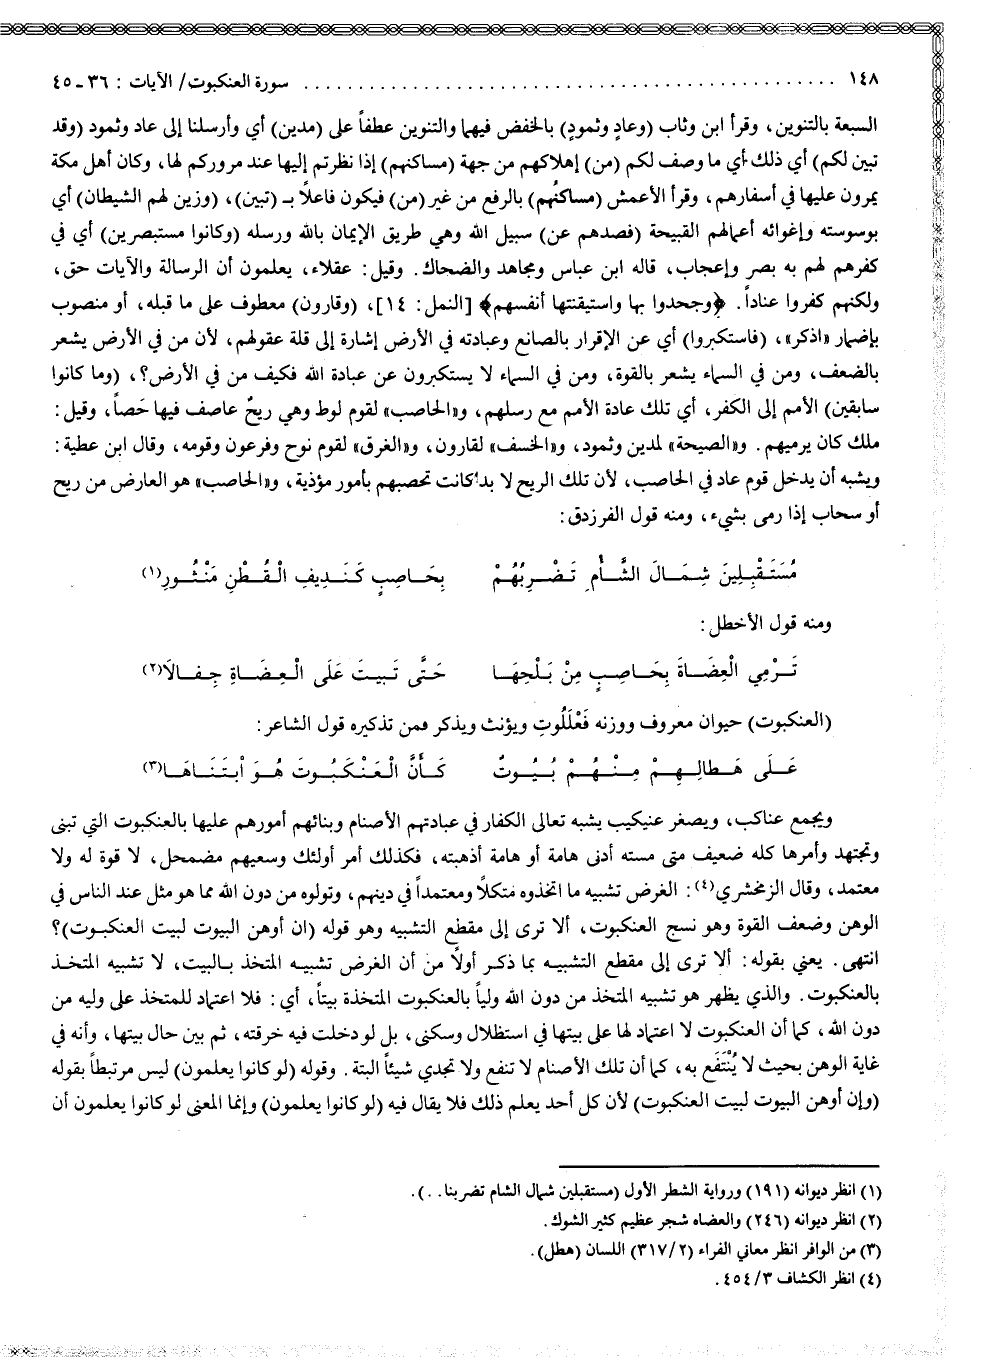 ١٤٨ ........................................ سورة العنكبوت/ الآيات : ٣٦ ـ ٤٥
السبعة بالتنوين، وقرأ ابن وثاب (وعادٍ وثمودٍ) بالخفض فيهما والتنوين عطفاً على (مدين) أي وأرسلنا إلى عاد وثمود (وقد
تبين لكم) أي ذلك أي ما وصف لكم (من) إهلاكهم من جهة (مساكنهم) إذا نظرتم إليها عند مروركم لها، وكان أهل مكة
يمرون عليها في أسفارهم، وقرأ الأعمش (مساكنُهم) بالرفع من غير (من) فيكون فاعلاً بـ (تبين)، (وزين لهم الشيطان) أي
بوسوسته وإغوائه أعمالهم القبيحة (فصدهم عن) سبيل الله وهي طريق الإيمان بالله ورسله (وكانوا مستبصرين) أي في
كفرهم لهم به بصر وإعجاب، قاله ابن عباس ومجاهد والضحاك. وقيل: عقلاء، يعلمون أن الرسالة والآيات حق،
ولكنهم كفروا عناداً. ﴿وجحدوا بها واستيقنتها أنفسهم﴾ [النمل: ١٤]، (وقارون) معطوف على ما قبله، أو منصوب
بإضمار «اذكر»، (فاستكبروا) أي عن الإقرار بالصانع وعبادته في الأرض إشارة إلى قلة عقولهم، لأن من في الأرض يشعر
بالضعف، ومن في السماء يشعر بالقوة، ومن في السماء لا يستكبرون عن عبادة الله فكيف من في الأرض؟، (وما كانوا
سابقين) الأمم إلى الكفر، أي تلك عادة الأمم مع رسلهم، و«الحاصب» لقوم لوط وهي ريحٌ عاصف فيها حَصاً، وقيل:
ملك كان يرميهم. و«الصيحة» لمدين وثمود، و«الخسف» لقارون، و«الغرق» لقوم نوح وفرعون وقومه، وقال ابن عطية:
ويشبه أن يدخل قوم عاد في الحاصب، لأن تلك الريح لا بد كانت تحصبهم بأمور مؤذية، و«الحاصب» هو العارض من ريح
أو سحاب إذا رمى بشيء، ومنه قول الفرزدق:
مُسْتَقْبِلِينَ شِمَالَ الشَّأْمِ تَضْرِبُهُمْ بِحَاصِبٍ كَنَدِيفِ الْقُطْنِ مَنْثُورِ(١)
ومنه قول الأخطل:
تَرْمِي الْعِضَاةَ بِحَاصِبٍ مِنْ بَلْجِهَا حَتَّى تَبِيتَ عَلَى الْعِضَاةِ جِفَالَا(٢)
(العنكبوت) حيوان معروف ووزنه فَعْلَلُوتِ ويؤنث ويذكر فمن تذكيره قول الشاعر:
عَلَى هَطَالِهِمْ مِنْهُمْ بُيُوتٌ كَأَنَّ الْعَنْكَبُوتَ هُوَ ابْتَنَاهَا(٣)
ويجمع عناكب، ويصغر عنيكيب يشبه تعالى الكفار في عبادتهم الأصنام وبنائهم أمورهم عليها بالعنكبوت التي تبنى
وتجتهد وأمرها كله ضعيف متى مسته أدنى هامة أو هامة أذهبته، فكذلك أمر أولئك وسعيهم مضمحل، لا قوة له ولا
معتمد، وقال الزمخشري(٤): الغرض تشبيه ما اتخذوه متكلاً ومعتمداً في دينهم، وتولوه من دون الله مما هو مثل عند الناس في
الوهن وضعف القوة وهو نسج العنكبوت، ألا ترى إلى مقطع التشبيه وهو قوله (ان أوهن البيوت لبيت العنكبوت)؟
انتهى. يعني بقوله: ألا ترى إلى مقطع التشبيه بما ذكر أولاً من أن الغرض تشبيه المتخذ بالبيت، لا تشبيه المتخذ
بالعنكبوت. والذي يظهر هو تشبيه المتخذ من دون الله ولياً بالعنكبوت المتخذة بيتاً، أي: فلا اعتماد للمتخذ على وليه من
دون الله، كما أن العنكبوت لا اعتماد لها على بيتها في استظلال وسكنى، بل لو دخلت فيه خرقته، ثم بين حال بيتها، وأنه في
غاية الوهن بحيث لا يُنْتَفَع به، كما أن تلك الأصنام لا تنفع ولا تجدي شيئاً البتة. وقوله (لو كانوا يعلمون) ليس مرتبطاً بقوله
(وإن أوهن البيوت لبيت العنكبوت) لأن كل أحد يعلم ذلك فلا يقال فيه (لو كانوا يعلمون) وإنما المعنى لو كانوا يعلمون أن
(١) انظر ديوانه (١٩١) ورواية الشطر الأول (مستقبلين شمال الشام تضربنا ..).
(٢) انظر ديوانه (٢٤٦) والعضاه شجر عظيم كثير الشوك.
(٣) من الوافر انظر معاني الفراء (٣١٧/٢) اللسان (هطل).
(٤) انظر الكشاف ٤٥٤/٣.